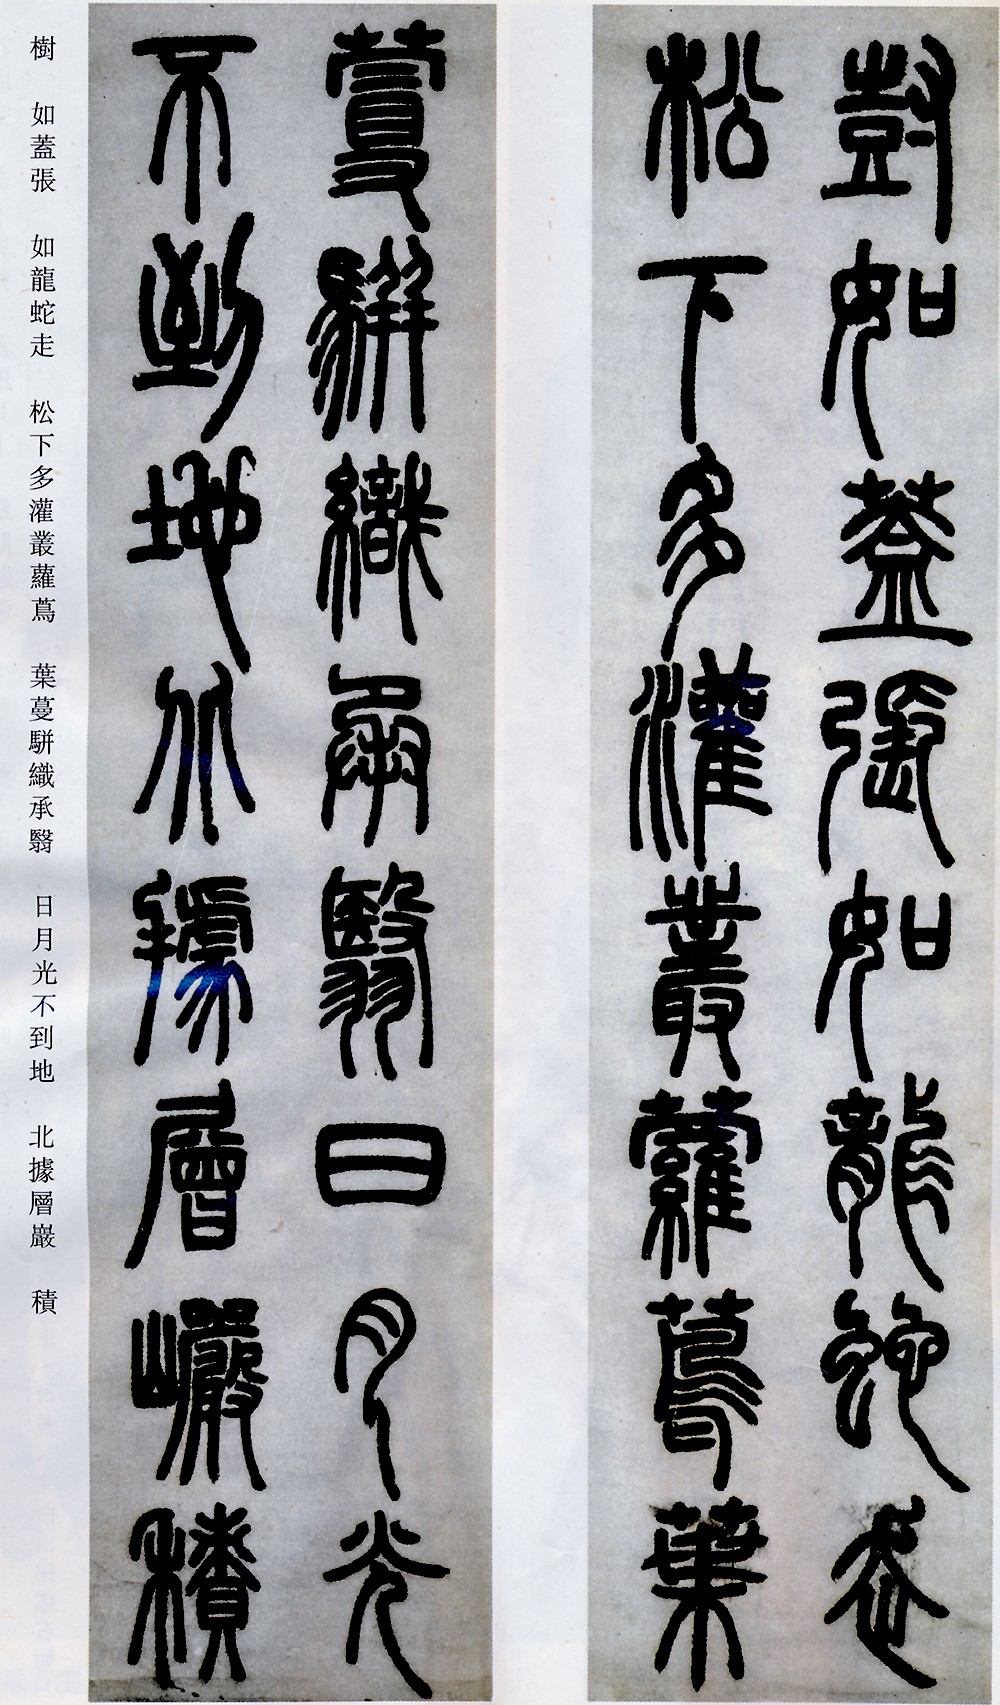 樹如蓋張如龍蛇走
松下多灌叢蘿蔦葉
蔓駢織承翳日月光
不到地北據層巖積
樹 如蓋張 如龍蛇走 松下多灌叢蘿蔦 葉蔓駢織承翳 日月光不到地 北據層巖 積